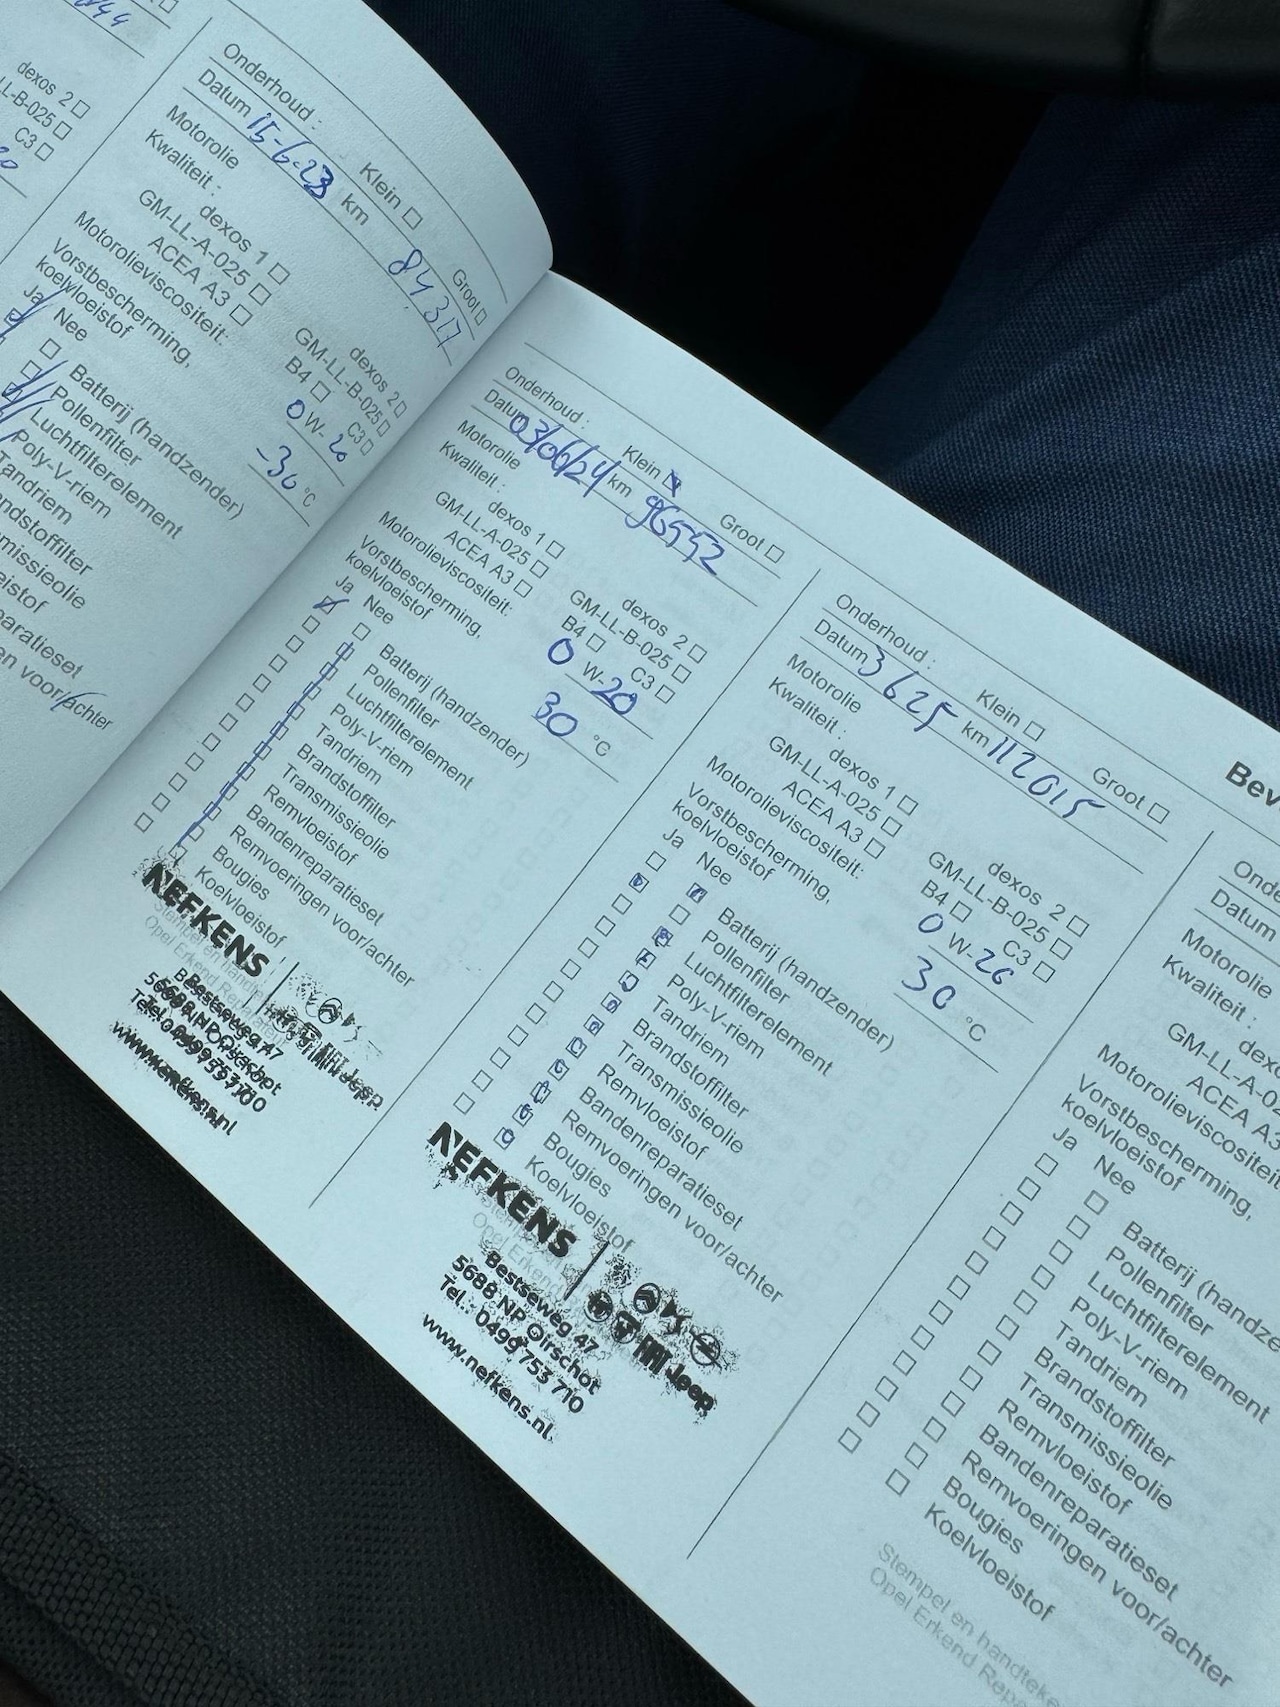 844
dexos 2
LL-B-025
C3
Onderhoud : Klein Groot
Datum 15-6-23 km 84317
Motorolie
Kwaliteit :
dexos 1 dexos 2
GM-LL-A-025 GM-LL-B-025
ACEA A3 B4 C3
Motorolieviscositeit: 0 W- 20
Vorstbescherming,
koelvloeistof -30 °C
Ja Nee
Batterij (handzender)
Pollenfilter
Luchtfilterelement
Poly-V-riem
Tandriem
ndstoffilter
missieolie
eistof
paratieset
en voor/achter
Onderhoud : Klein Groot
Datum 03/06/24 km 96552
Motorolie
Kwaliteit :
dexos 1 dexos 2
GM-LL-A-025 GM-LL-B-025
ACEA A3 B4 C3
Motorolieviscositeit: 0 W- 20
Vorstbescherming,
koelvloeistof 30 °C
Ja Nee
Batterij (handzender)
Pollenfilter
Luchtfilterelement
Poly-V-riem
Tandriem
Brandstoffilter
Transmissieolie
Remvloeistof
Bandenreparatieset
Remvoeringen voor/achter
Bougies
Koelvloeistof
NEFKENS
Stempel en hand
Opel Erkend Rep
Bestseweg 47
5688 NP Oirschot
Tel.: 0499 753 710
www.nefkens.nl
Jeep
Onderhoud : Klein Groot
Datum 3 6 25 km 112015
Motorolie
Kwaliteit :
dexos 1 dexos 2
GM-LL-A-025 GM-LL-B-025
ACEA A3 B4 C3
Motorolieviscositeit: 0 W- 20
Vorstbescherming,
koelvloeistof 30 °C
Ja Nee
Batterij (handzender)
Pollenfilter
Luchtfilterelement
Poly-V-riem
Tandriem
Brandstoffilter
Transmissieolie
Remvloeistof
Bandenreparatieset
Remvoeringen voor/achter
Bougies
Koelvloeistof
NEFKENS
Opel Erkend
Bestseweg 47
5688 NP Oirschot
Tel.: 0499 753 710
www.nefkens.nl
FIAT Jeep
Bev
Onde
Datum
Motorolie
Kwaliteit :
dexo
GM-LL-A-02
ACEA A3
Motorolieviscositeit
Vorstbescherming,
koelvloeistof
Ja Nee
Batterij (handze
Pollenfilter
Luchtfilterelement
Poly-V-riem
Tandriem
Brandstoffilter
Transmissieolie
Remvloeistof
Bandenreparatieset
Remvoeringen voor/achter
Bougies
Koelvloeistof
Stempel en handteke
Opel Erkend Repa